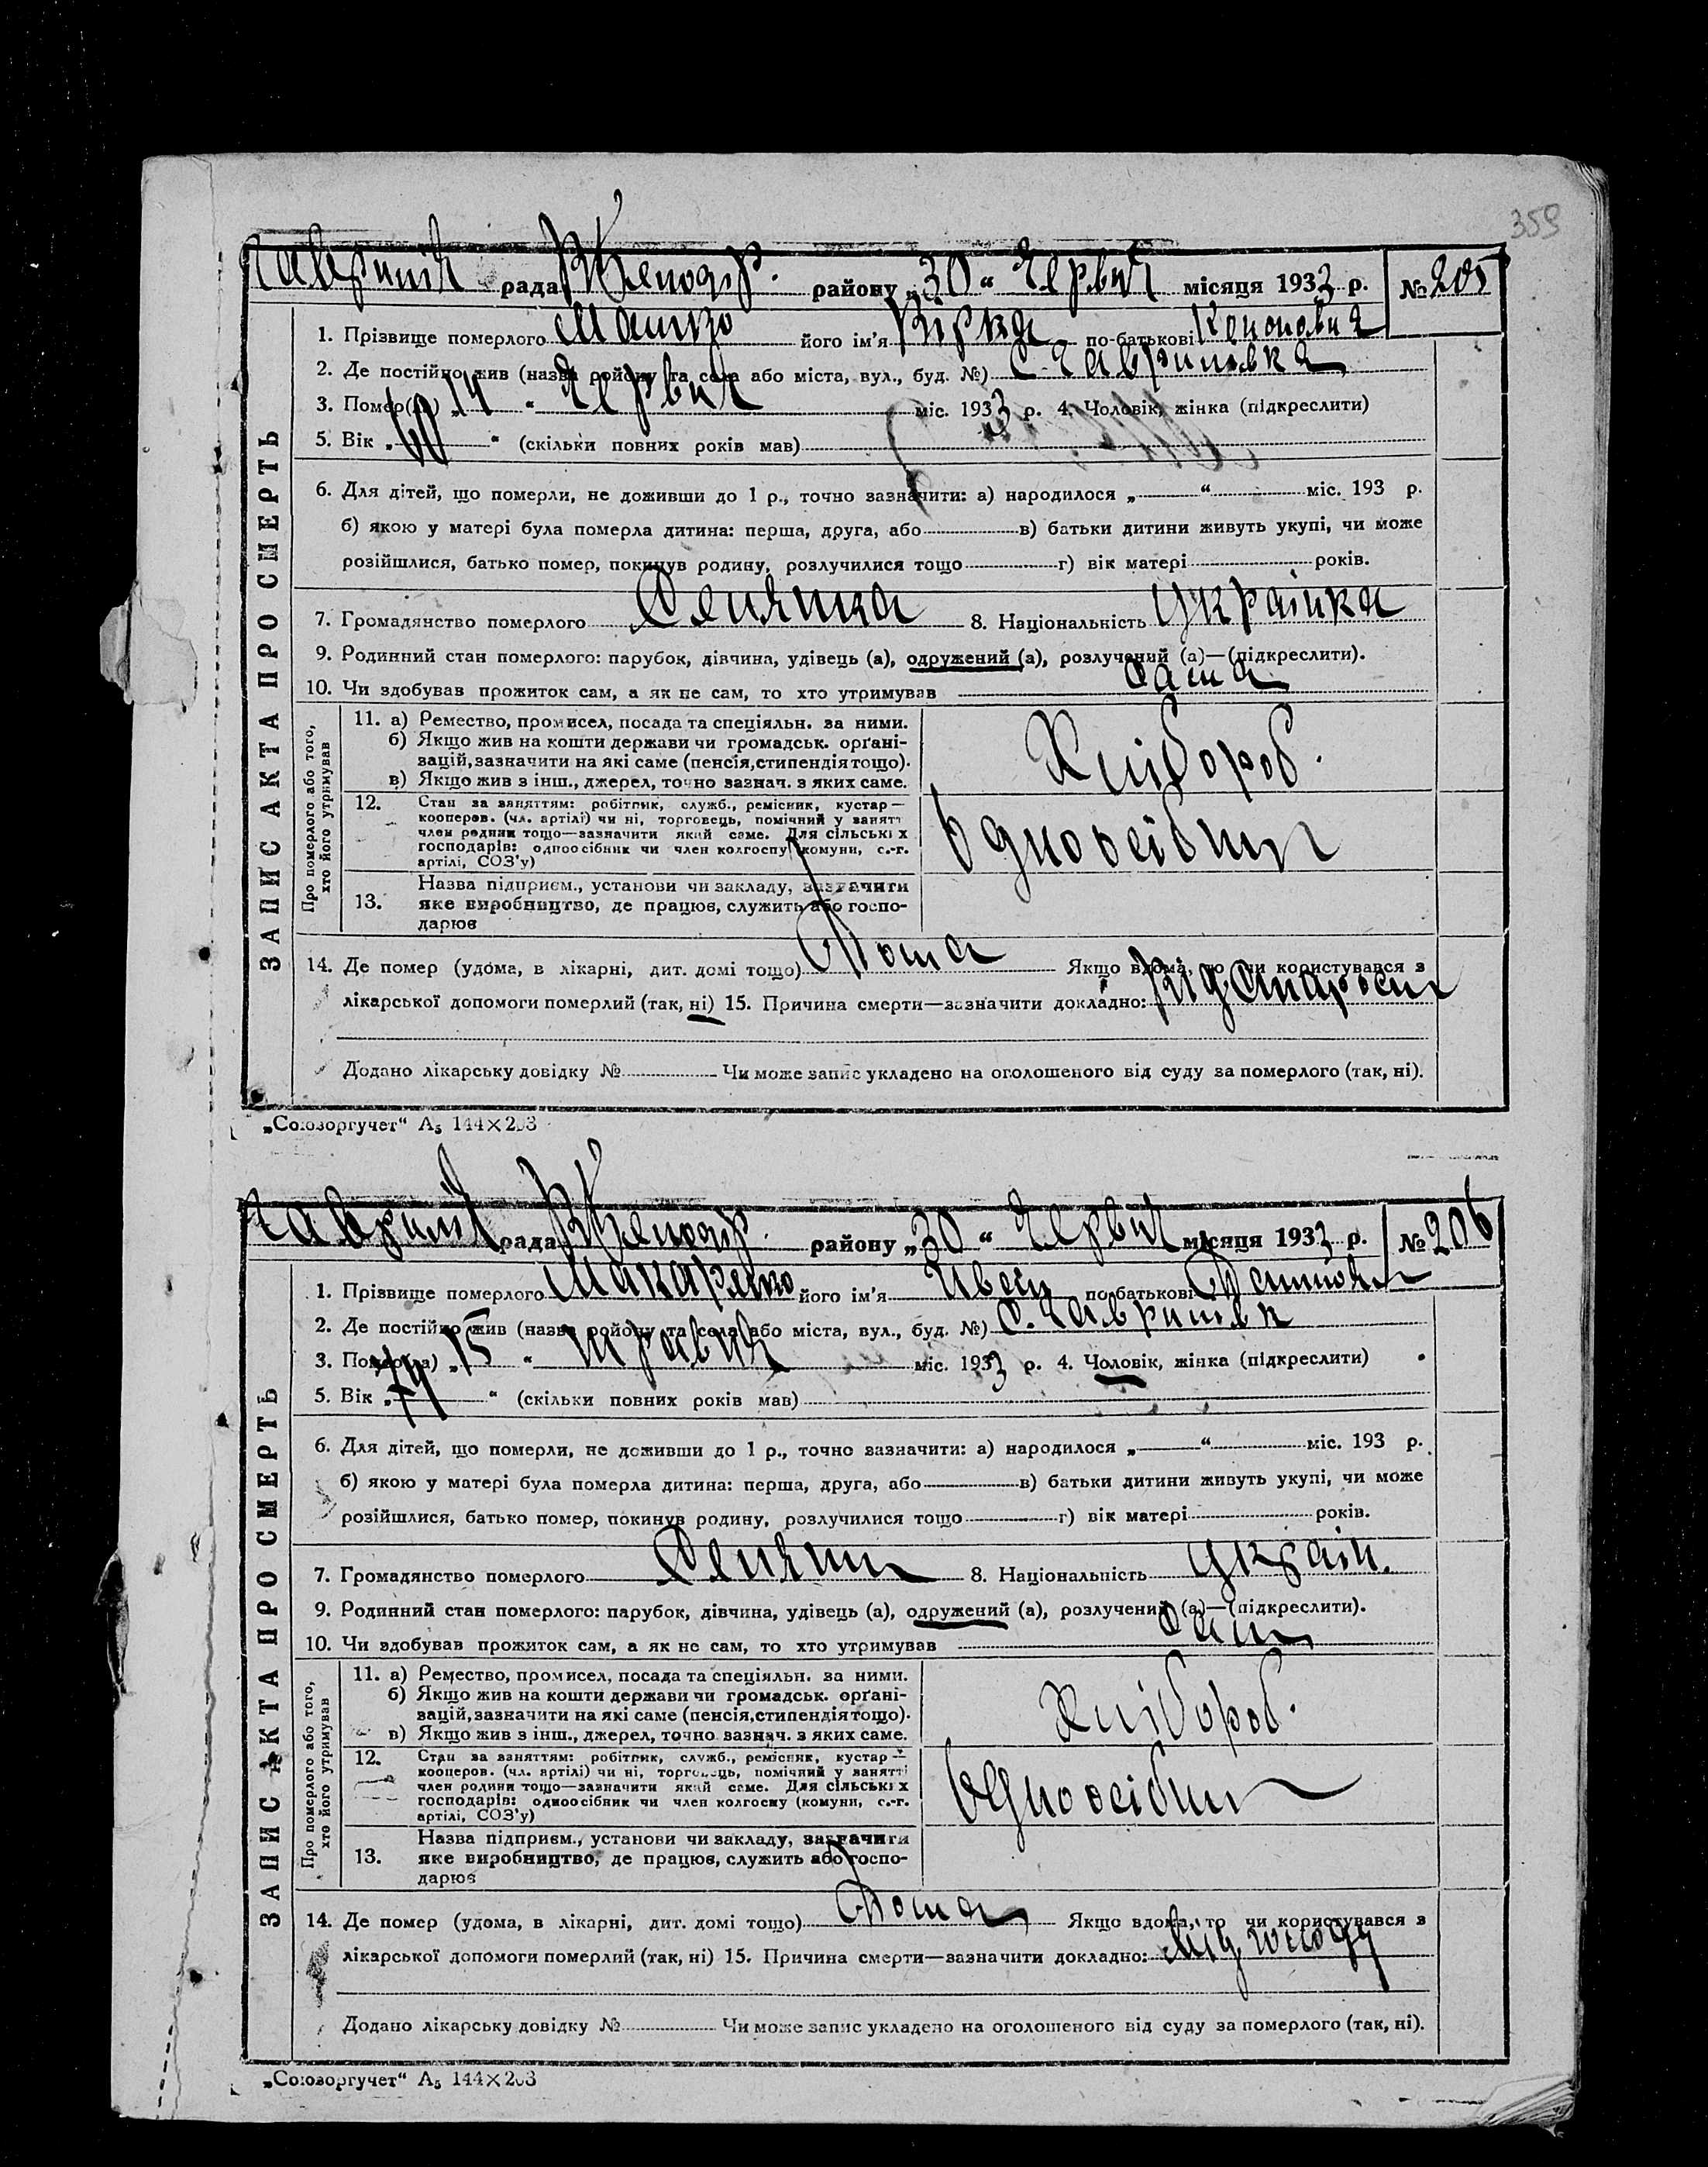 359
Гавриш рада район у „30“ Червня місяця 1933 р. №205
1. Прізвище померлого Машко його ім'я по-батькові Кононовна
2. Де постійно жив (назва району та села або міста, вул., буд. №) с. Гавришовка
3. Помер(ла) „14“ Червня міс. 1933 р. 4. Чоловік, жінка (підкреслити)
5. Вік „60“ (скільки повних років мав)
6. Для дітей, що померли, не доживши до 1 р., точно зазначити: а) народилося „ “ міс. 193 р.
б) якою у матері була померла дитина: перша, друга, або в) батьки дитини живуть укупі, чи може
розійшлися, батько помер, покинув родину, розлучилися тощо г) вік матері років.
7. Громадянство померлого Селянка 8. Національність Українка
9. Родинний стан померлого: парубок, дівчина, удівець (а), одружений (а), розлучений (а)—(підкреслити).
10. Чи здобував прожиток сам, а як не сам, то хто утримував сама
ЗАПИС АКТА ПРО СМЕРТЬ
Про померлого або того,
хто його утримував
11. а) Ремество, промисел, посада та спеціяльн. за ними.
б) Якщо жив на кошти держави чи громадськ. органі-
зацій, зазначити на які саме (пенсія, стипендія тощо).
в) Якщо жив з інш., джерел, точно зазнач. з яких саме.
Хлібороб.
12. Стан за заняттям: робітник, служб., ремісник, кустар —
кооперов. (чл. артілі) чи ні, торговець, помічний у занятті
член родини тощо—зазначити який саме. Для сільських
господарів: одноосібник чи член колгоспу (комуни, с.-г.
артілі, СОЗ'у)
Одноосібник
13. Назва підприєм., установи чи закладу, зазначити
яке виробництво, де працює, служить або госпо-
дарює
14. Де помер (удома, в лікарні, дит. домі тощо) Дома Якщо вдома, то чи користувався з
лікарської допомоги померлий (так, ні) 15. Причина смерти—зазначити докладно: Від старости
Додано лікарську довідку № Чи може запис укладено на оголошеного від суду за померлого (так, ні).
„Союзоргучет“ А5 144×203
рада району „30“ Червня місяця 1933 р. №206
1. Прізвище померлого Макаренко його ім'я по-батькові
2. Де постійно жив (назва району та села або міста, вул., буд. №) с. Гавришовк
3. Помер(ла) „15“ травня міс. 1933 р. 4. Чоловік, жінка (підкреслити)
5. Вік „74“ (скільки повних років мав)
6. Для дітей, що померли, не доживши до 1 р., точно зазначити: а) народилося „ “ міс. 193 р.
б) якою у матері була померла дитина: перша, друга, або в) батьки дитини живуть укупі, чи може
розійшлися, батько помер, покинув родину, розлучилися тощо г) вік матері років.
7. Громадянство померлого Селянин 8. Національність Україн.
9. Родинний стан померлого: парубок, дівчина, удівець (а), одружений (а), розлучений (а)—(підкреслити).
10. Чи здобував прожиток сам, а як не сам, то хто утримував сам
ЗАПИС АКТА ПРО СМЕРТЬ
Про померлого або того,
хто його утримував
11. а) Ремество, промисел, посада та спеціяльн. за ними.
б) Якщо жив на кошти держави чи громадськ. органі-
зацій, зазначити на які саме (пенсія, стипендія тощо).
в) Якщо жив з інш., джерел, точно зазнач. з яких саме.
Хлібороб.
12. Стан за заняттям: робітник, служб., ремісник, кустар —
кооперов. (чл. артілі) чи ні, торговець, помічний у занятті
член родини тощо—зазначити який саме. Для сільських
господарів: одноосібник чи член колгоспу (комуни, с.-г.
артілі, СОЗ'у)
Одноосібник
13. Назва підприєм., установи чи закладу, зазначити
яке виробництво, де працює, служить або госпо-
дарює
14. Де помер (удома, в лікарні, дит. домі тощо) Дома Якщо вдома, то чи користувався з
лікарської допомоги померлий (так, ні) 15. Причина смерти—зазначити докладно: Від голоду
Додано лікарську довідку № Чи може запис укладено на оголошеного від суду за померлого (так, ні).
„Союзоргучет“ А5 144×203